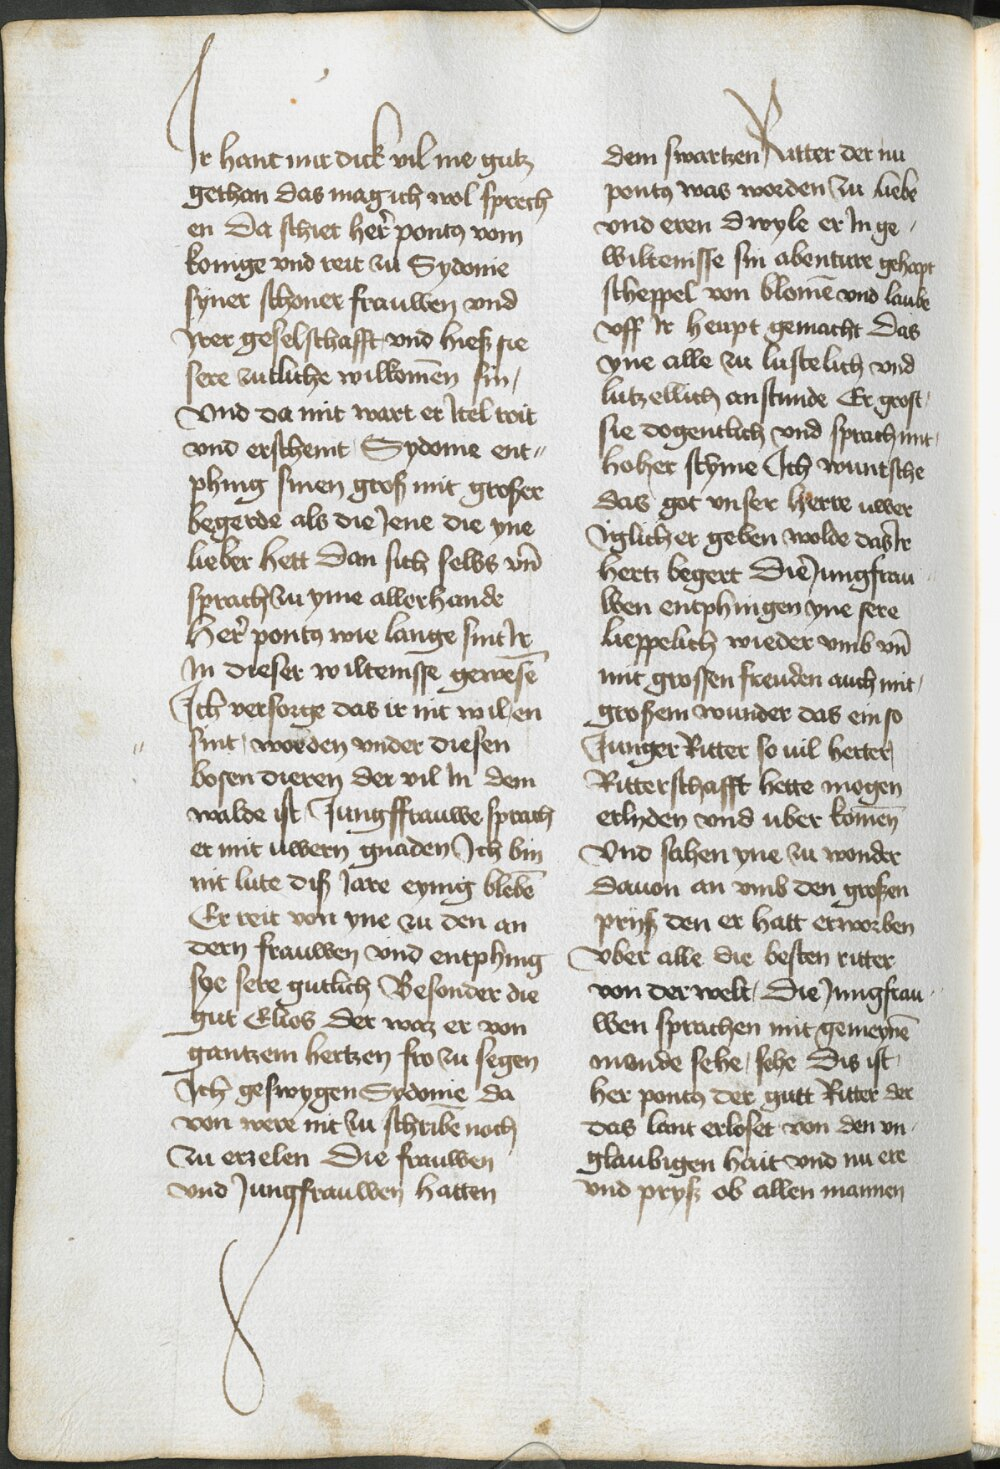 Ir hant mir dick vil me gutz
gethan das mag ich wol sprech
en Da schiet her̃ pontꝰ vom
konige vnd reit zu Sydonie
syner schoner frauwen vnd
Irer geselschafft vnd hieß sie
sere zutliche wilkom̄en sin /
Vnd da mit wart er Itel roit
vnd erscheint Sydonie ent〃
phing sinen groß mit großer
begerde als die Jene die yne
lieber hett dan sich selbs vn̄
sprach zu yme allerhande
Her̃ pontꝰ wie lange sint Ir
In dieser wiltenisse gewesē
Ich versorge das ir nit wil, en
sint / worden vnder diesen
bosen dieren der vil In dem
walde ist Jungffrauwe sprach
er mit uwern gnaden Ich bin
nit lute diß Jare eynig blebē
Er reit von yne zu den an
dern frauwen vnd entphing
sye sere gutlich Besonder die
gut Elios der waz er von
gantzem hertzen fro zu segen
Ich geswygen Sydonie da
von were nit zu schribē noch
Zu erzelen Die frauwen
vnd Jungfrauwen hatten
dem swartzen Ritter der nu
pontꝰ was worden zu liebe
vnd eren dwyle er In ge /
wiltenisse sin abenture gehapt
scheppel von blomē vnd laube
vff Ir heupt gemacht Das
yne alle zu lustelich vnd
lutzellich an stunde Er grost /
sie dogentlich vnd sprach mit /
hoher stym̄e Ich wuntsche
das got vnser herre uwer
Iglicher geben wolde das Ir
hertz begert Die Jungfrau
wen entphingen yne sere
lieppelich wieder vmb vn̄
mit grossen freuden auch mit /
großem wunder das ein so
Junger Ritter so vil herter
Ritterschafft hette mogen
erlyden vnd uber komē
Vnd sahen yne zu wonder
dauon an vmb den großen
prijß den er hatt erworben
Vber alle die besten ritter
von der welt / Die Jungfrau /
wen sprachen mit gemeynē
monde sehe / sehe Dis ist
her pontꝰ der gutt Ritter der
das lant erloset von den vn /
glaubigen hait vnd nu ere
vnd pryß ob allen mannen